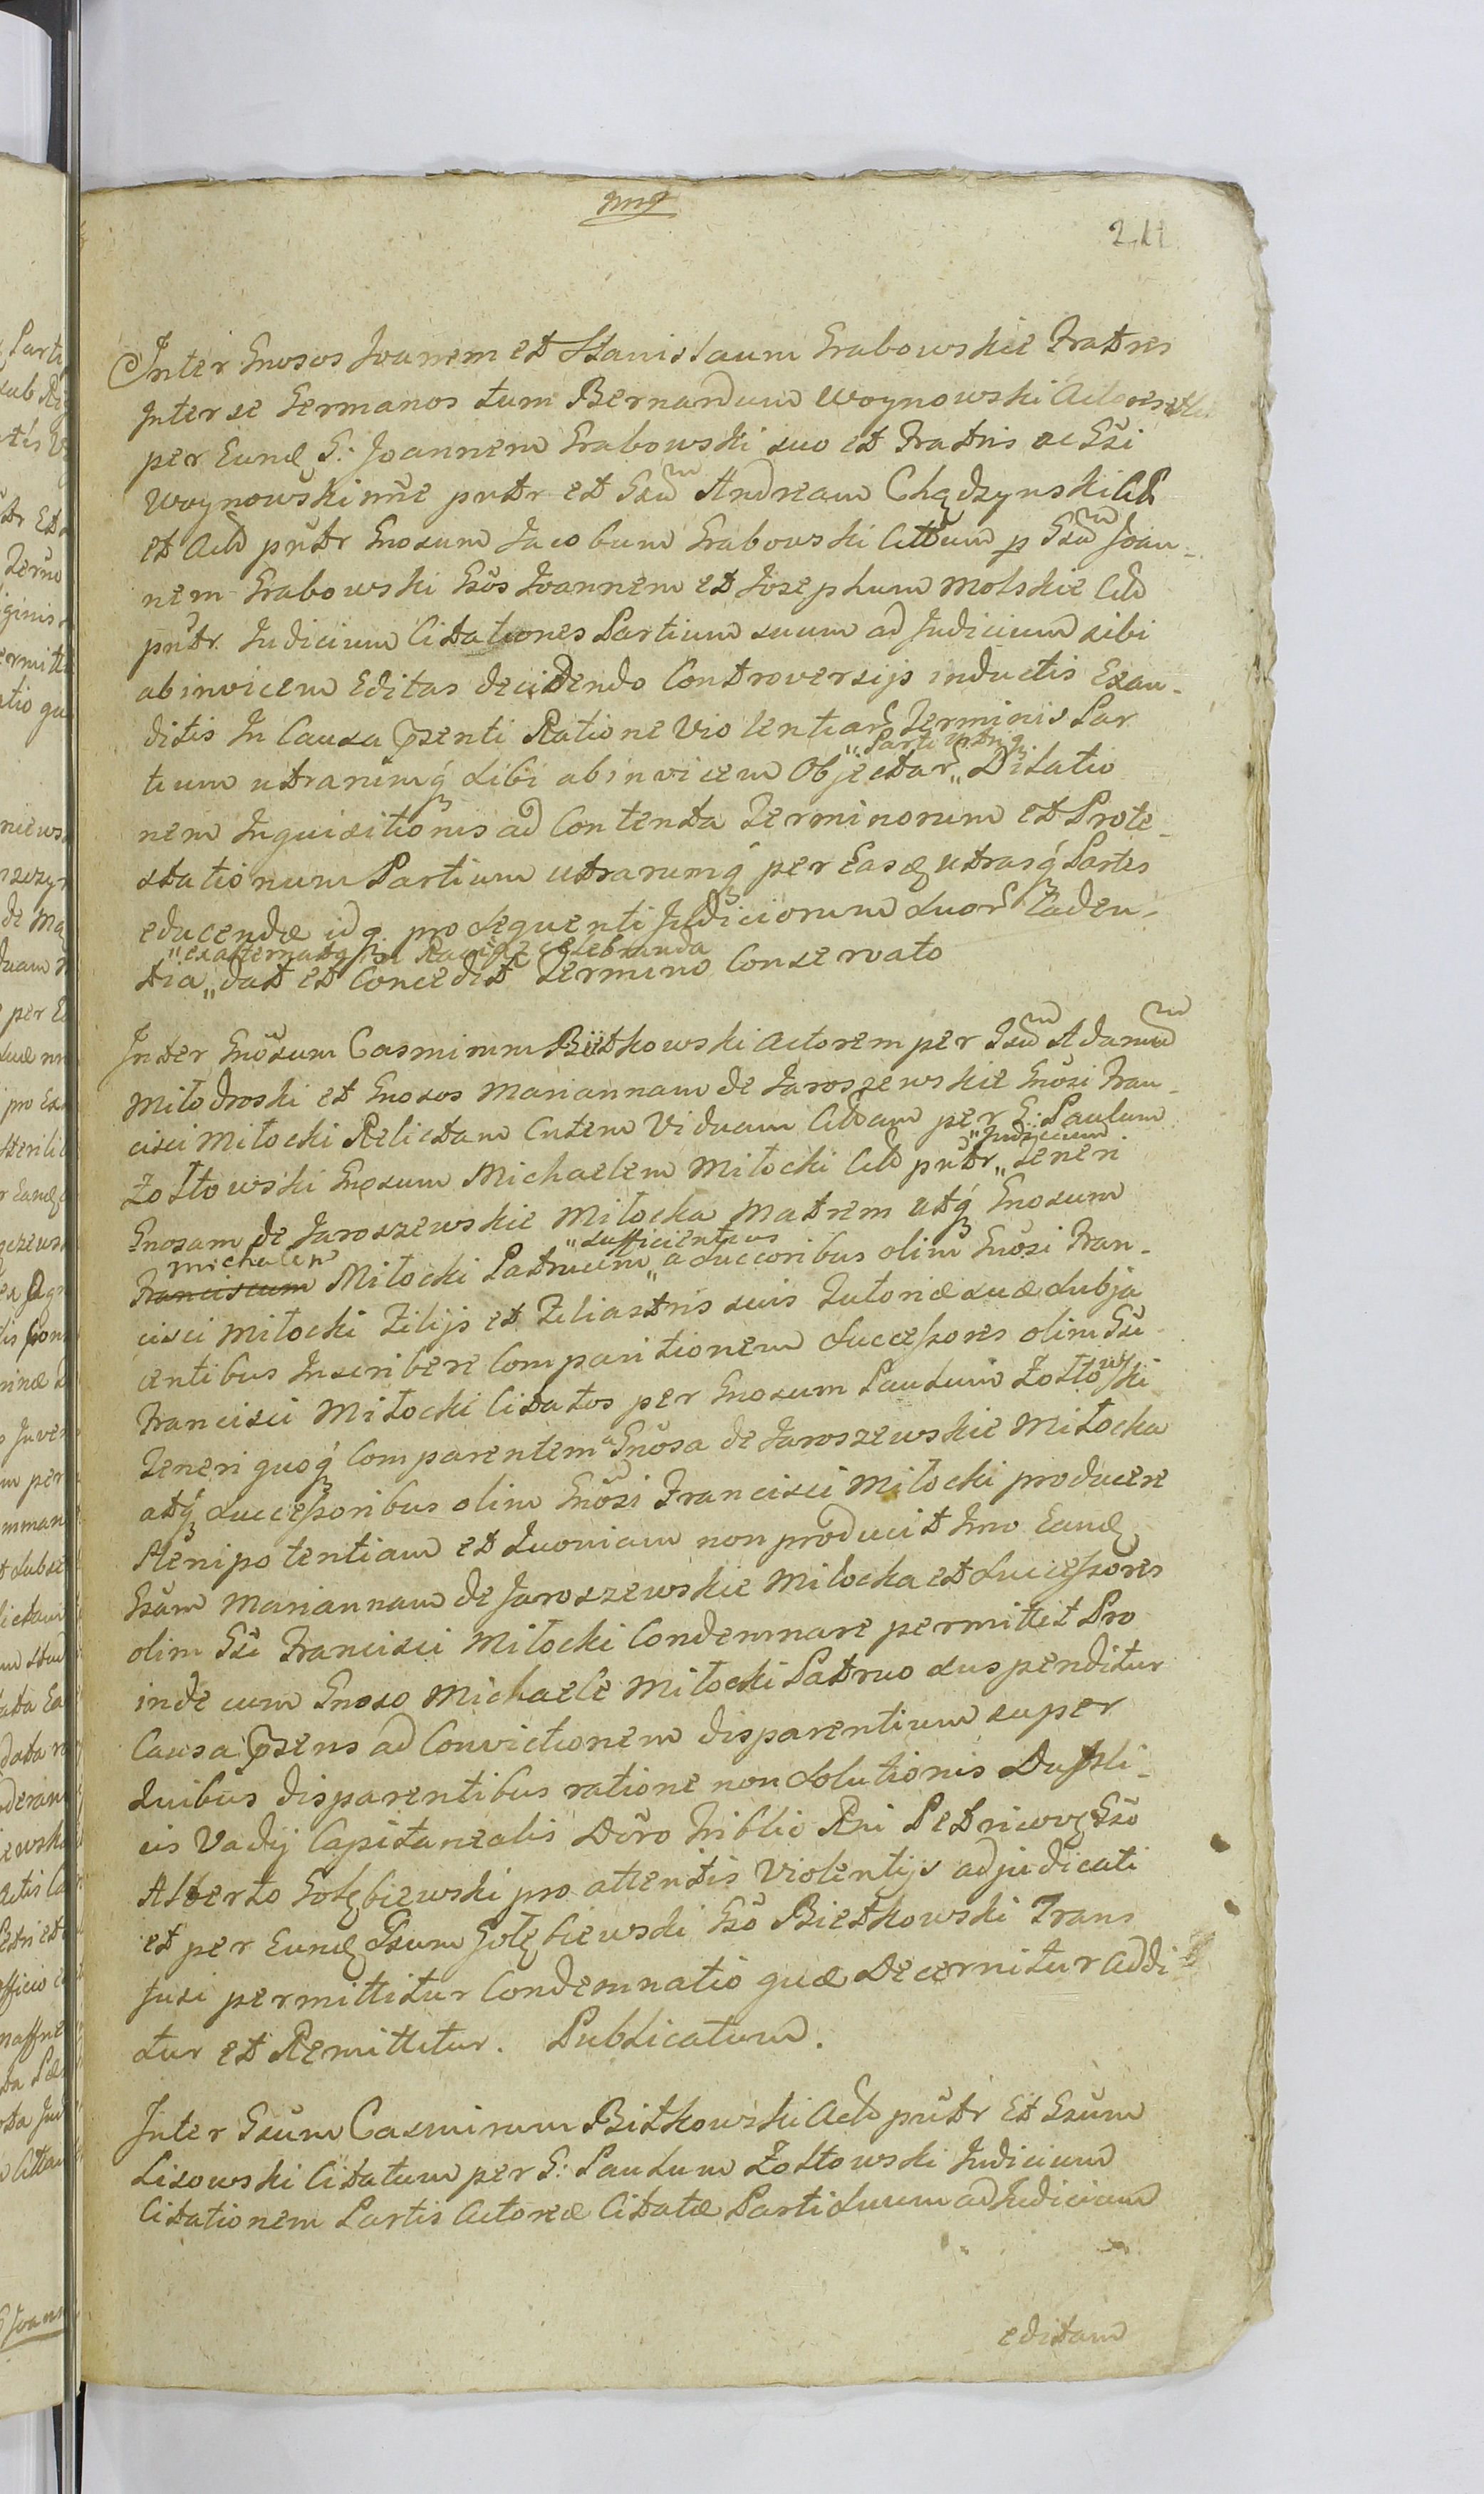 211
Inter Gnosos Joanem et Stanislaum Grabowskie Fratres
Inter se Germanos tum Bernardum Woynowski Actores
per Eund G: Joannem Grabowski suo et Fratris ac Gsi
Woynowski nñe pñtr et Gsũ Andream Chądzynski Ctt
et Actt pñtr Gnosum Jacobum Grabowski Cttum p Gsũ Joan-
nem Grabowski Gsos Joannem et Josephum Molskie Ctt
pñtr. Judicium Citationes Partium suum ad Judicium sibi
abinvicem Editas decidendo Controversijs inductis Exau-
ditis In Causa pzenti Ratione Violentiar Terminis Par
"Parti Utriq
tium utrarumq sibi abinvicem Objectar " Dilatio
nem Inquisitionis ad Contenta Terminorum et Prote-
stationum Partium utrarumq per Easd utrasq Partes
educendæ idq pro sequenti Judiciorum suor Caden-
" exalternata in Raciąż celebranda
tia " dat et Concedit Termino Conservato
Inter Gnosum Casimirum Bietkowski Actorem per Gsũ Adamum
Miłodroski et Gnosos Mariannam de Jaroszewskie Gnosi Fran-
cisci Miłocki Relictam Cutem Viduam Cttam per G: Paulum
" Judicium
Zołtowski Gnosum Michaelem Miłocki Ctt pñtr " Teneri
Gnosam de Jaroszewskie Miłocka Matrem atq Gnosum
Michalem " sufficientius
Franciscum Miłocki Patruum " a succoribus olim Gnosi Fran-
cisci Miłocki Filijs et Filiastris suis Tutoriæ suæ subja
centibus Inscribere Comparitionem Successores olim Gsi
Francisci Miłocki Citatos per Gnosum Paulum Zołtowski
Teneri quoq Comparentem a Gnosa de Jaroszewskie Miłocka
atq Successoribus olim Gnosi Francisci Miłocki producere
Plenipotentiam et Quoniam non producit Imo Eand
Gsam Mariannam de Jaroszewskie Miłocka et Successores
olim Gsi Francisci Miłocki Condemnare permittit Pro
inde cum Gnoso Michaele Miłocki Patruo suspenditur
Causa pzens ad Convictionem disparentium super
Quibus disparentibus ratione non Solutionis Dupli-
cis Vadij Capitanealis Doro Triblio Rni Petricov Gso
Alberto Gołębiewski pro attentis Violentijs adjudicati
et per Eund Gsum Gołębiewski Gso Bietkowski Trans
fusi permittitur Condemnatio quæ Decernitur Addi
tur et Remittitur. Publicatum.
Inter Gsum Casimirum Bitkowski Actt pñtr Et Gsum
Lisowski Citatum per G: Paulum Zołtowski Judicium
Citationem Partis Actoreæ Citatæ Parti suum ad Judicium
editam